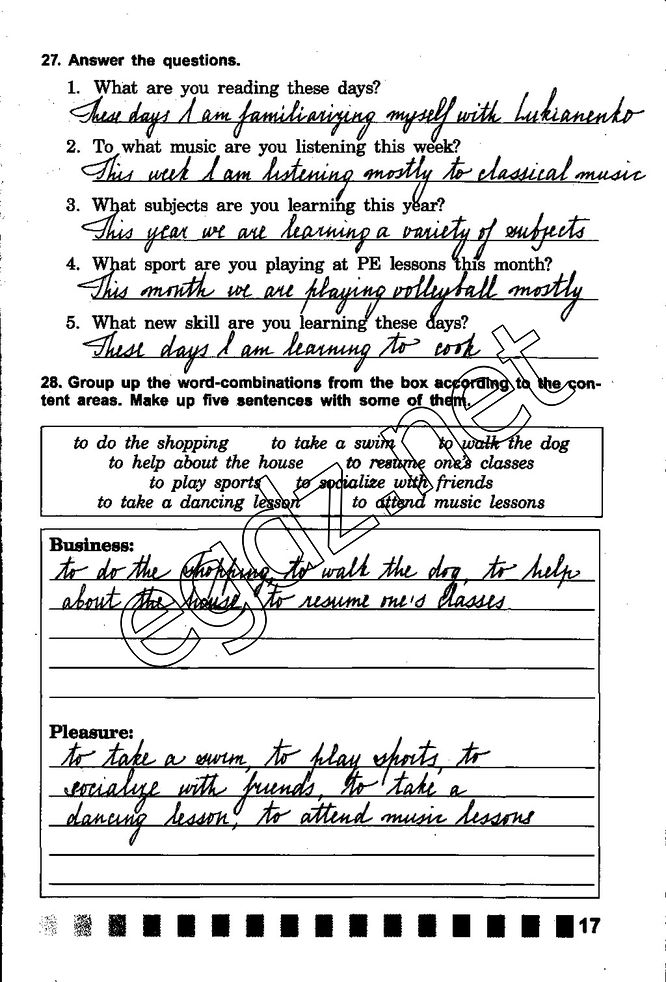 27. Answer the questions.
1. What are you reading these days?
These days I am familiarizing myself with Lukianenko
2. To what music are you listening this week?
This week I am listening mostly to classical music
3. What subjects are you learning this year?
This year we are learning a variety of subjects
4. What sport are you playing at PE lessons this month?
This month we are playing volleyball mostly
5. What new skill are you learning these days?
These days I am learning to cook
28. Group up the word-combinations from the box according to the con-
tent areas. Make up five sentences with some of them.
to do the shopping to take a swim to walk the dog
to help about the house to resume one's classes
to play sports to socialize with friends
to take a dancing lesson to attend music lessons
Business:
to do the shopping, to walk the dog, to help
about the house, to resume one's classes
Pleasure:
to take a swim, to play sports, to
socialize with friends, to take a
dancing lesson, to attend music lessons
17
egdz.net